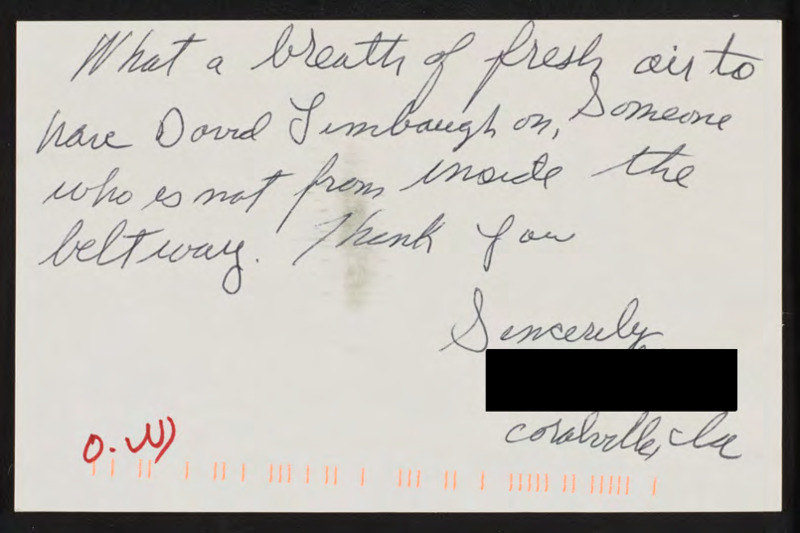 What a breath of fresh air to
have David Limbaugh on, Someone
who is not from inside the
beltway. Thank you
Sincerely
Coralville, Ia
O.W)